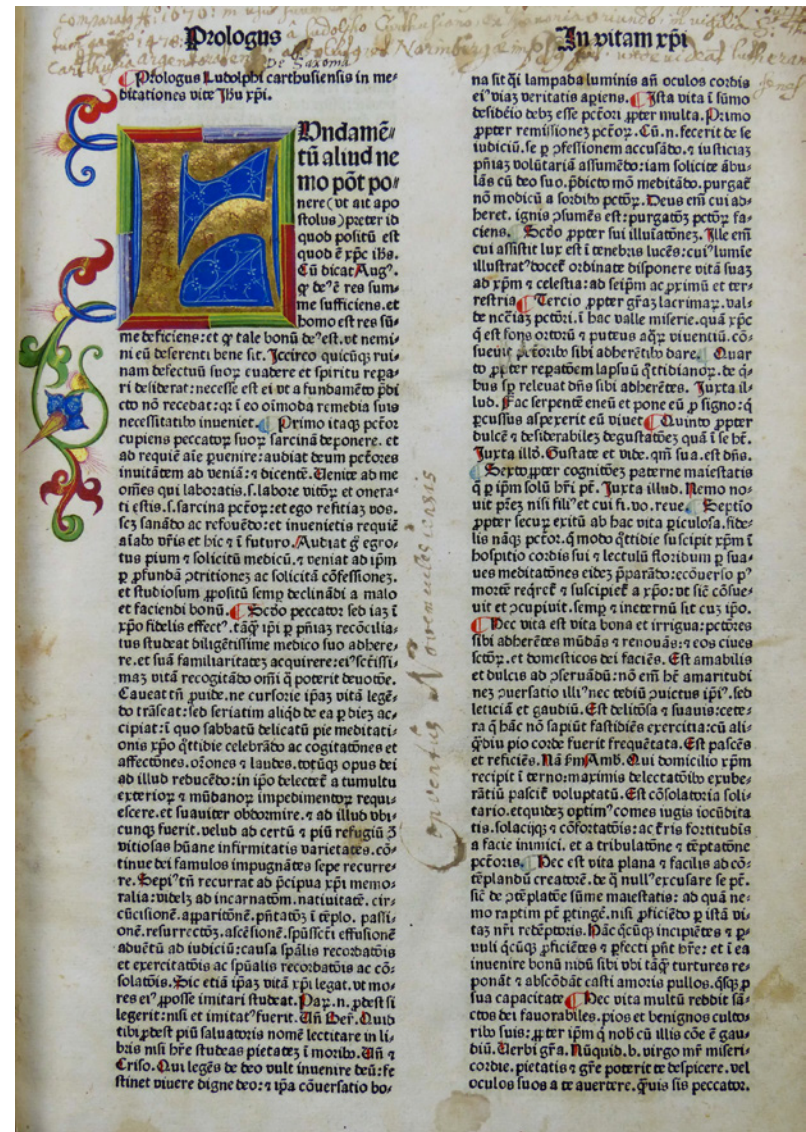 Prologus
In vitam xp̄i
De Saxonia
Prologus Ludolphi carthusiensis in me⸗
ditationes vite Jh̄u xp̄i.
Vndamē⸗
tū aliud ne
mo pōt po⸗
nere (vt ait apo
stolus) preter id
quod positū est
quod ē xp̄c ih̄s.
Cū dicat Augꝰ.
ꝙ deꝰ ē res sum⸗
me sufficiens. et
homo est res sū⸗
me deficiens: et ꝙ tale bonū deꝰ est. vt nemi⸗
ni eū deserenti bene sit. Iccirco quicūqꝫ rui⸗
nam defectuū suoꝝ euadere et spiritu repa⸗
ri desiderat: necesse est ei vt a fundamēto p̄di
cto nō recedat: qꝛ ī eo oīmoda remedia suis
necessitatibꝰ inueniet. Primo itaqꝫ pctōr
cupiens peccatoꝝ suoꝝ sarcinā deponere. et
ad requiē aīe ꝑuenire: audiat deum pctōres
inuitātem ad veniā: ⁊ dicentē. Uenite ad me
om̄es qui laboratis. s. labore vitioꝝ et onera⸗
ti estis. s. sarcina pctōꝝ: et ego reficiā vos.
seꝫ sanādo ac refouēdo: et inuenietis requiē
aīabꝰ vr̄is et hic ⁊ ī futuro. Audiat ḡ egro⸗
tus pium ⁊ solicitū medicū. ⁊ veniat ad ip̄m
ꝑ ꝓfundā ꝯtritionez ac solicitā cōfessionez.
et studiosum ꝓpositū semꝑ declinādi a malo
et faciendi bonū. Scd̄o peccator sed iaꝫ ī
xp̄o fidelis effectꝰ. tāqꝫ ip̄i ꝑ pn̄iaꝫ recōcilia⸗
tus studeat diligētissime medico suo adhere⸗
re. et suā familiaritateꝫ acquirere: eiꝰ scīssi⸗
maꝫ vitā recogitādo om̄i q̄ poterit deuotōe.
Caueat tn̄ ꝓuide. ne cursorie ip̄aꝫ vitā legē⸗
do trāseat: sed seriatim aliqd̄ de ea ꝑ dieꝫ ac⸗
cipiat: ī quo sabbatū delicatū pie meditati⸗
onis xp̄o q̄ttidie celebrādo ac cogitatōnes et
affectōnes. or̄ones ⁊ laudes. totūqꝫ opus dei
ad illud reducēdo: in ip̄o delectet̄ a tumultu
exterioꝝ ⁊ mūdanoꝝ impedimentoꝝ requi⸗
escere. et suauiter obdormire. ⁊ ad illud vbi⸗
cunqꝫ fuerit. velud ad certū ⁊ piū refugiū ꝯ̄
vitiosas hūane infirmitatis varietates. cō⸗
tinue dei famulos impugnātes sepe recurre⸗
re. Sepiꝰ tn̄ recurrat ad p̄cipua xp̄i memo⸗
ralia: videlꝫ ad incarnatōm. natiuitatē. cir⸗
cūcisionē. apparitōnē. pn̄tatōꝫ ī tēplo. passi⸗
onē. resurrectōꝫ. ascēsionē. spūssct̄i effusionē
aduētū ad iudiciū: causa sp̄alis recordatōis
et exercitatōis ac spūalis recordatōis ac cō⸗
solatōis. Sic etiā ip̄aꝫ vitā xp̄i legat. vt mo⸗
res eiꝰ ꝓposse imitari studeat. Paꝝ. n. ꝓdest si
legerit: nisi et imitatꝰ fuerit. Un̄ Ber̄. Quid
tibi ꝓdest piū saluatoris nomē lectitare in li⸗
bris nisi hr̄e studeas pietateꝫ ī moribꝰ. Un̄ ⁊
Criso. Qui legēs de deo vult inuenire deū: fe
stinet viuere digne deo: ⁊ ip̄a cōuersatio bo⸗
na sit q̄i lampada luminis an̄ oculos cordis
eiꝰ viaꝫ veritatis aꝑiens. Ista vita ī sūmo
desidēio debꝫ esse pctōri ꝓpter multa. Primo
ꝓpter remissioneꝫ pctōꝝ. Cū. n. fecerit de se
iudiciū. se ꝑ ꝯfessionem accusādo. ⁊ iusticiaꝫ
pn̄iaꝫ volūtariā assumēdo: iam solicite ābu⸗
lās cū deo suo. p̄dicto mō meditādo. purgat̄
nō modicū a sordibꝰ pctōꝝ. Deus em̄ cui ad⸗
heret. ignis ꝯsumēs est: purgatōꝫ pctōꝝ fa⸗
ciens. Scd̄o ꝓpter sui illuīatōnez. Ille em̄
cui assistit lux est ī tenebris lucēs: cuiꝰ lumīe
illustratꝰ docet̄ ordinate disponere vitā suaꝫ
ad xp̄m ⁊ celestia: ad seip̄m ac ꝓximū et ter⸗
restria. Tercio ꝓpter gr̄aꝫ lacrimaꝝ. val⸗
de nc̄ciaꝫ pctōri. ī hac valle miserie. quā xp̄c
q̄ est fons ortoꝝ ⁊ puteus aqꝝ viuentiū. cō⸗
sueuit pctōribꝰ sibi adherētibꝰ dare. Quar
to ꝓpter reꝑatōem lapsuū q̄ttidianoꝝ. de q̄⸗
bus sꝑ releuat dn̄s sibi adherētes. Juxta il⸗
lud. Fac serpentē eneū et pone eū ꝓ signo: q̄
ꝑcussus aspexerit eū viuet. Quinto ꝓpter
dulcē ⁊ desiderabileꝫ degustatōeꝫ quā ī se hꝫ.
Juxta illd̄. Gustate et vide. qm̄ sua. est dn̄s.
Sexto ꝓpter cognitōeꝫ paterne maiestatis
q̄ ꝑ ip̄m solū hr̄i pt̄. Juxta illud. Nemo no⸗
uit pr̄eꝫ nisi filiꝰ et cui fi. vo. reue. Septīo
ꝓpter secuꝝ exitū ab hac vita ꝑiculosa. fide⸗
lis nāqꝫ pctōr. q̄ modo q̄ttidie suscipit xp̄m ī
hospitio cordis sui ⁊ lectulū floridum ꝑ sua⸗
ues meditatōnes eideꝫ p̄parādo: ecōuerso pꝰ
mortē reqr̄et̄ ⁊ suscipiet̄ a xp̄o: vt sic̄ cōsue⸗
uit et ꝯcupiuit. semꝑ ⁊ ineternū sit cuꝫ ip̄o.
Hec vita est vita bona et irrigua: pctōres
sibi adherētes mūdās ⁊ renouās: ⁊ eos ciues
sctōꝝ. et domesticos dei faciēs. Est amabilis
et dulcis ad ꝯseruādū: nō em̄ hꝫ amaritudi
neꝫ ꝯuersatio illiꝰ nec tediū ꝯuictus ip̄iꝰ. sed
leticiā et gaudiū. Est delitōsa ⁊ suauis: cete⸗
ra q̄ hāc nō sapiūt fastidiēs exercitia: cū ali⸗
q̄diu pio corde fuerit frequētata. Est pascēs
et reficiēs. Nā ẜm Amb. Qui domicilio xp̄m
recipit ī terno: maximis delectatōibꝰ exube⸗
rātiū pascit̄ voluptatū. Est cōsolatoria soli⸗
tario. et quideꝫ optimꝰ comes iugis iocūdita
tis. solacijqꝫ ⁊ cōfortatōis: ac t̄ris fortitudīs
a facie inimici. et a tribulatōne ⁊ tēptatōne
pctōris. Hec est vita plana ⁊ facilis ad cō⸗
tēplandū creatorē. de q̄ nullꝰ excusare se pt̄.
sic̄ de ꝯtēplatōe sūme maiestatis: ad quā ne⸗
mo raptim pt̄ ꝑtingē. nisi ꝓficiēdo ꝑ istā vi⸗
taꝫ nr̄i redēptoris. Hāc q̄cūqꝫ incipiētes ⁊ ꝑ⸗
uuli q̄cūqꝫ ꝓficiētes ⁊ ꝑfecti pn̄t hr̄e: et ī ea
inuenire bonū nidū sibi vbi tāqꝫ turtures re⸗
ponāt ⁊ abscōdāt casti amoris pullos. q̄sqꝫ ꝓ
sua capacitate. Hec vita multū reddit sā⸗
ctos dei fauorabiles. pios et benignos culto⸗
ribꝰ suis: ꝓpter ip̄m q̄ nob̄ cū illis cōe ē gau⸗
diū. Uerbi gr̄a. Nūquid. b. virgo mr̄ miseri⸗
cordie. pietatis ⁊ gr̄e poterit te despicere. vel
oculos suos a te auertere. q̄uis sis peccator.
Conventus